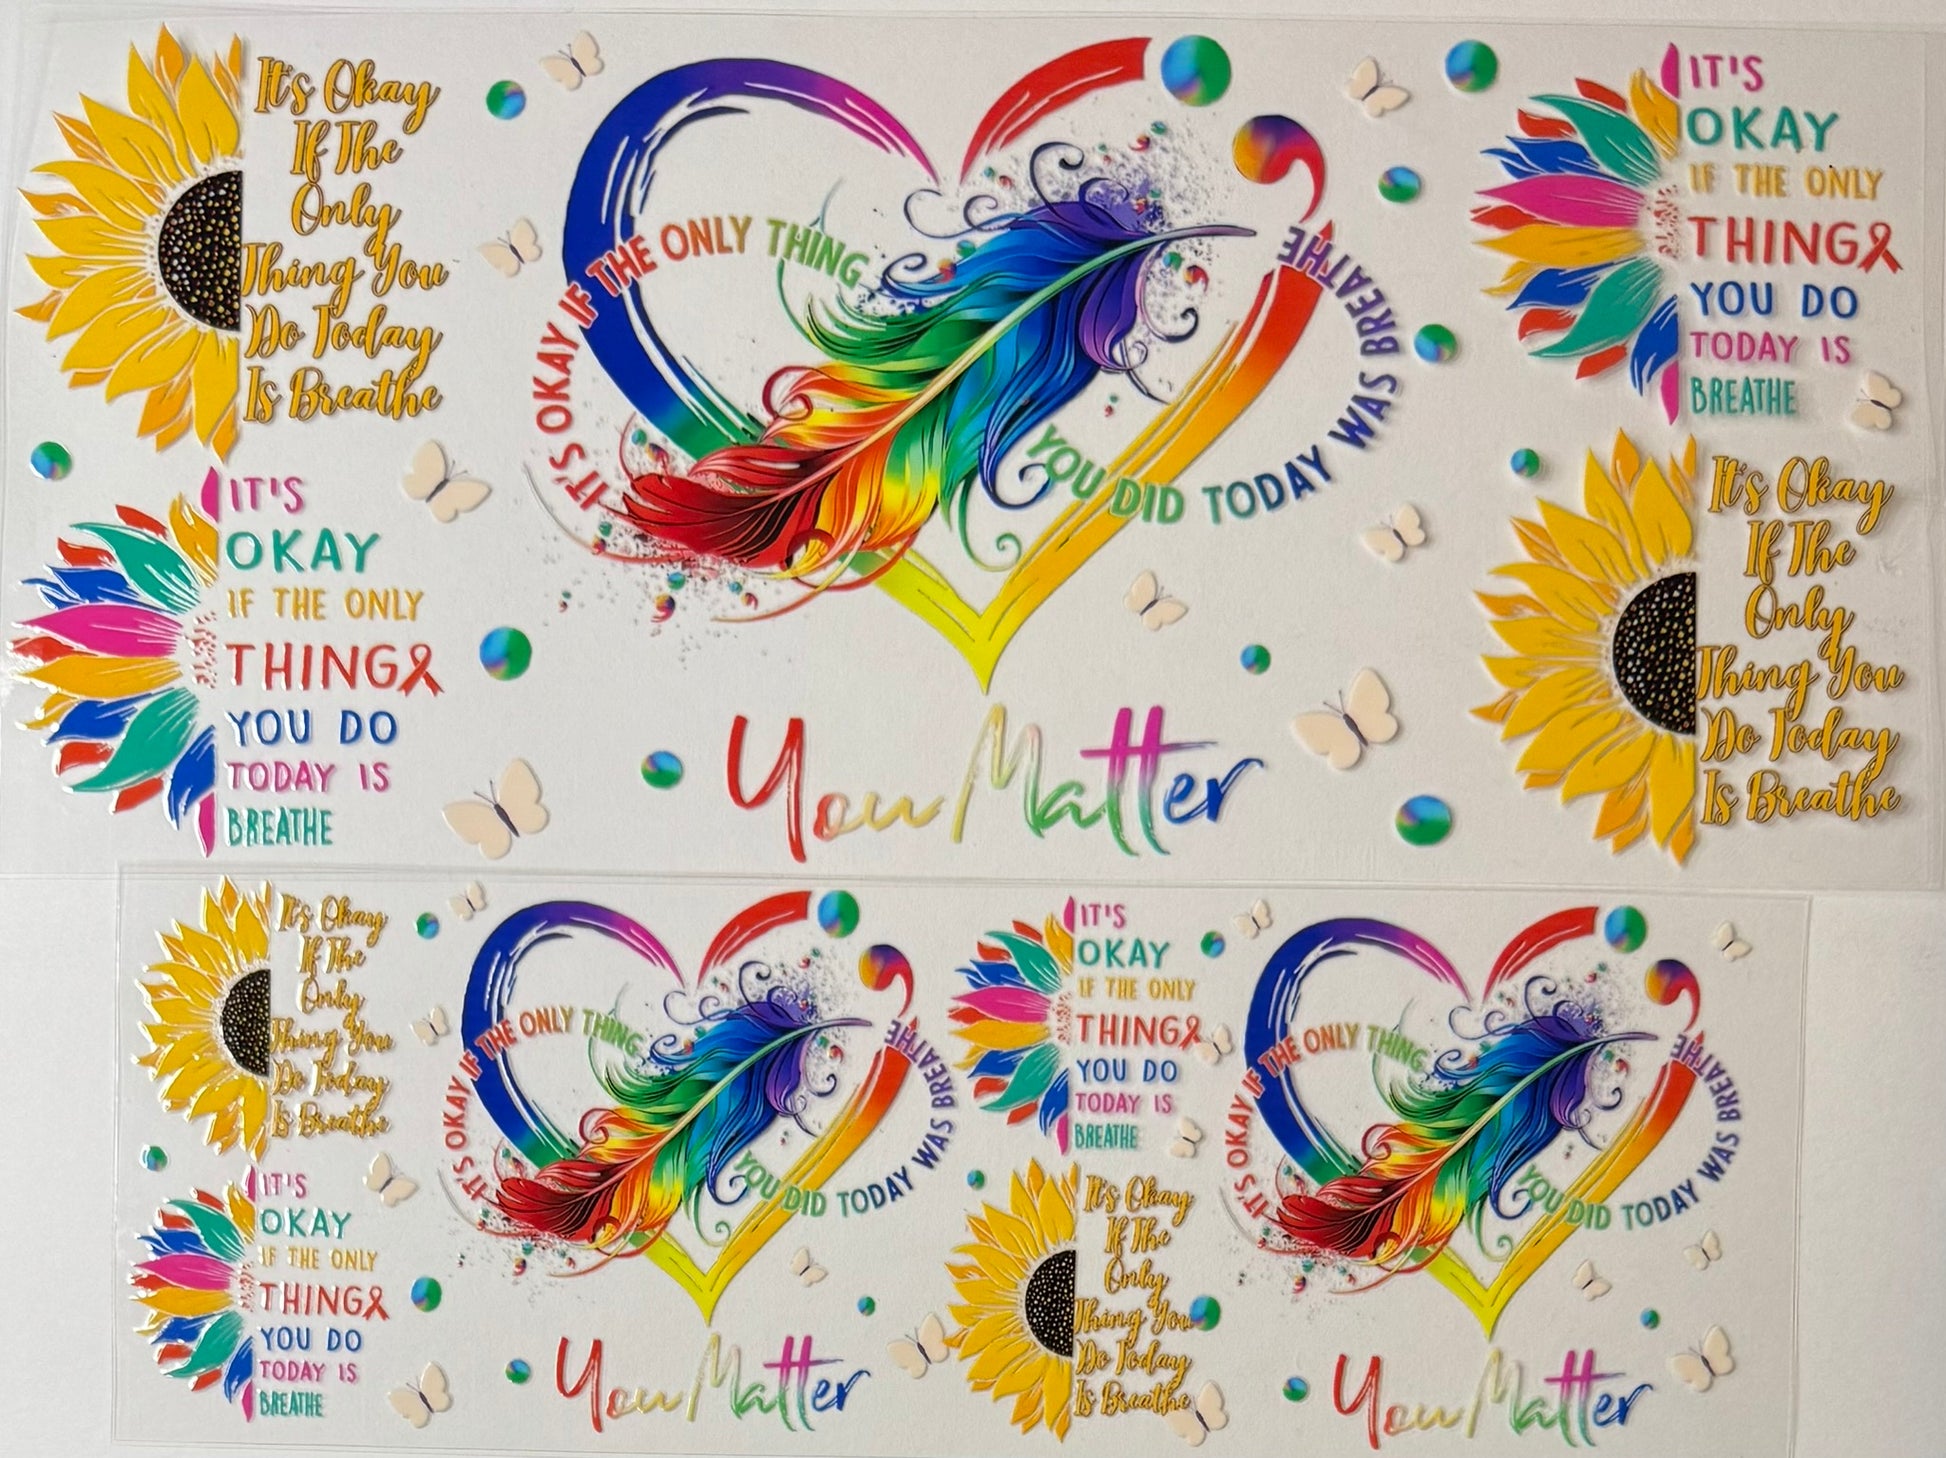 It's Okay
If The
Only
Thing You
Do Today
Is Breathe
IT'S
OKAY
IF THE ONLY
THING
YOU DO
TODAY IS
BREATHE
IT'S OKAY IF THE ONLY THING
YOU DID TODAY WAS BREATHE
You Matter
IT'S
OKAY
IF THE ONLY
THING
YOU DO
TODAY IS
BREATHE
It's Okay
If The
Only
Thing You
Do Today
Is Breathe
It's Okay
If The
Only
Thing You
Do Today
Is Breathe
IT'S
OKAY
IF THE ONLY
THING
YOU DO
TODAY IS
BREATHE
IT'S OKAY IF THE ONLY THING
YOU DID TODAY WAS BREATHE
You Matter
IT'S
OKAY
IF THE ONLY
THING
YOU DO
TODAY IS
BREATHE
It's Okay
If The
Only
Thing You
Do Today
Is Breathe
IT'S OKAY IF THE ONLY THING
YOU DID TODAY WAS BREATHE
You Matter